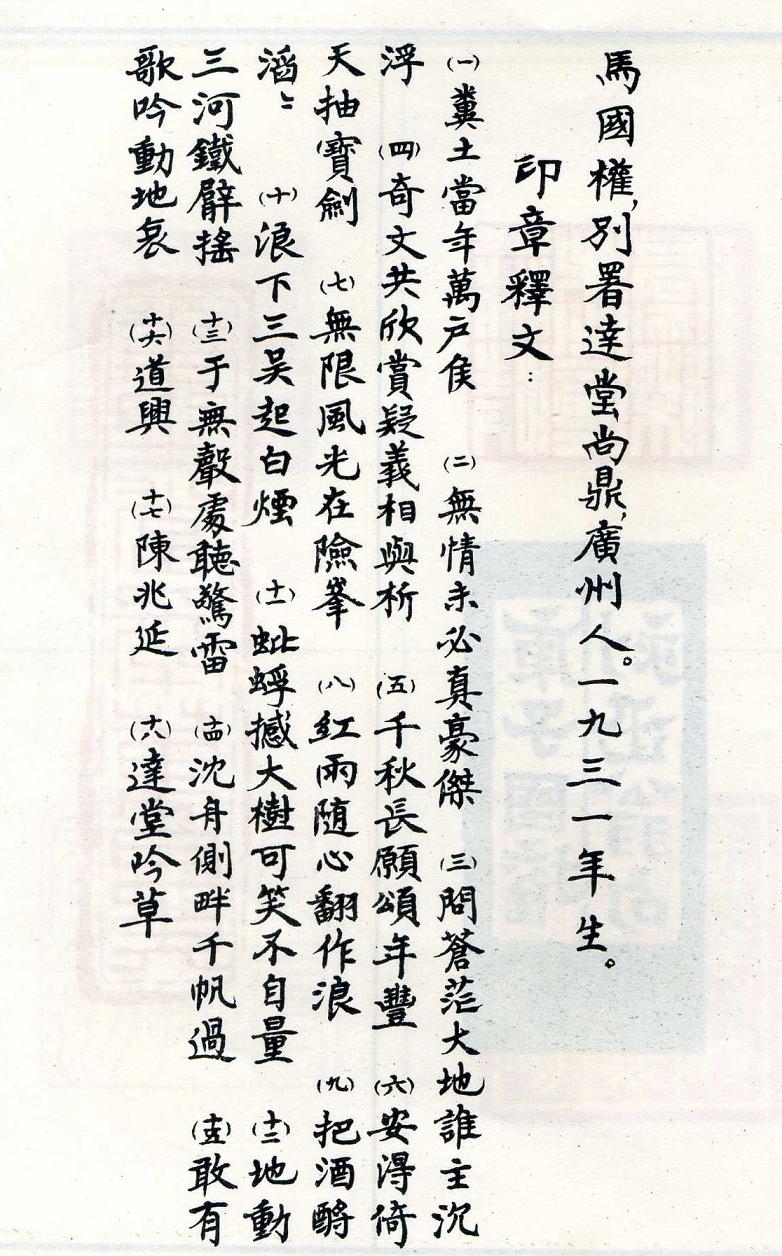 馬國權,別署達堂尚鼎,廣州人。一九三一年生。
印章釋文:
(一)糞土當年萬戶侯 (二)無情未必真豪傑 (三)問蒼茫大地誰主沉
浮 (四)奇文共欣賞疑義相與析 (五)千秋長願頌年豐 (六)安得倚
天抽寶劍 (七)無限風光在險峯 (八)紅雨随心翻作浪 (九)把酒酹
滔〻 (十)浪下三吴起白煙 (十一)蚍蜉撼大樹可笑不自量 (十二)地動
三河鐵臂搖 (十三)于無聲處聽驚雷 (十四)沈舟側畔千帆過 (十五)敢有
歌吟動地哀 (十六)道興 (十七)陳兆延 (十八)達堂吟草